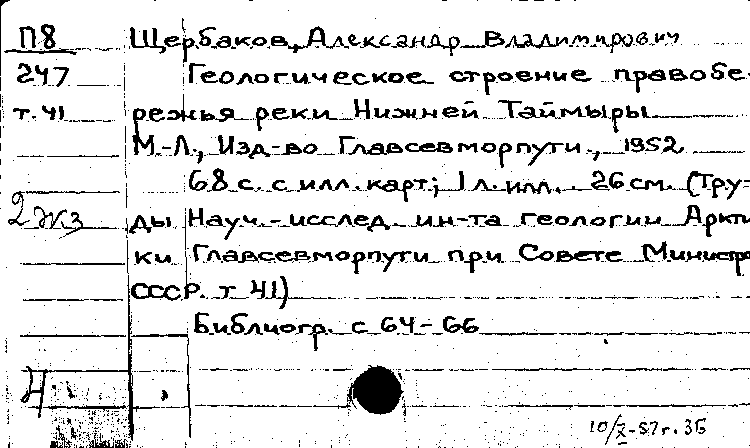 П8 Щербаков, Александр Владимирович
247 Геологическое строение правобе-
т. 41 режья реки Нижней Таймыры
М.-Л., Изд-во Главсевморпути, 1952
68 с. с илл. карт; 1 л. илл. 26 см. (Тру-
2 экз ды Науч.-исслед. ин-та геологии Аркти
ки Главсевморпути при Совете Министр
СССР. т 41)
Библиогр. с 64-66
10/X-57г. ЗБ